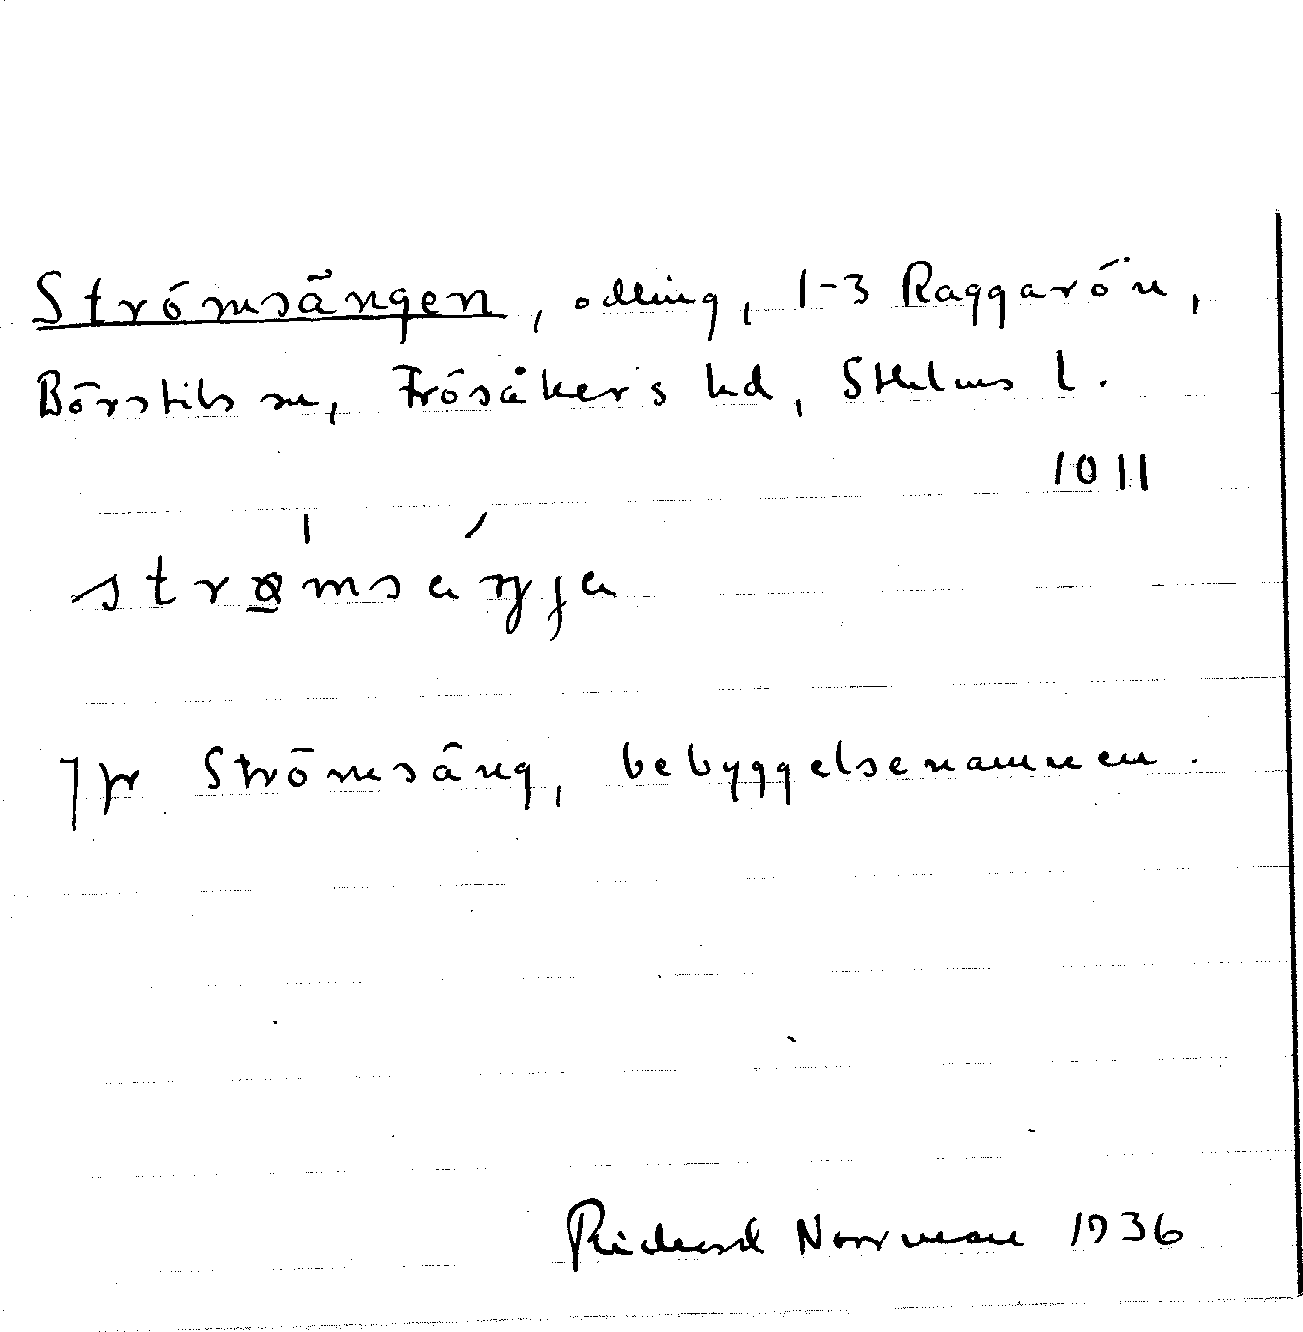 Strömsängen, odling, 1-3 Raggarön,
Börstils sn, Frösåkers hd, Sthlms l.
1011
strø̱̍msáŋja
Jfr Strömsäng, bebyggelsenamnen.
Richard Norrman 1936